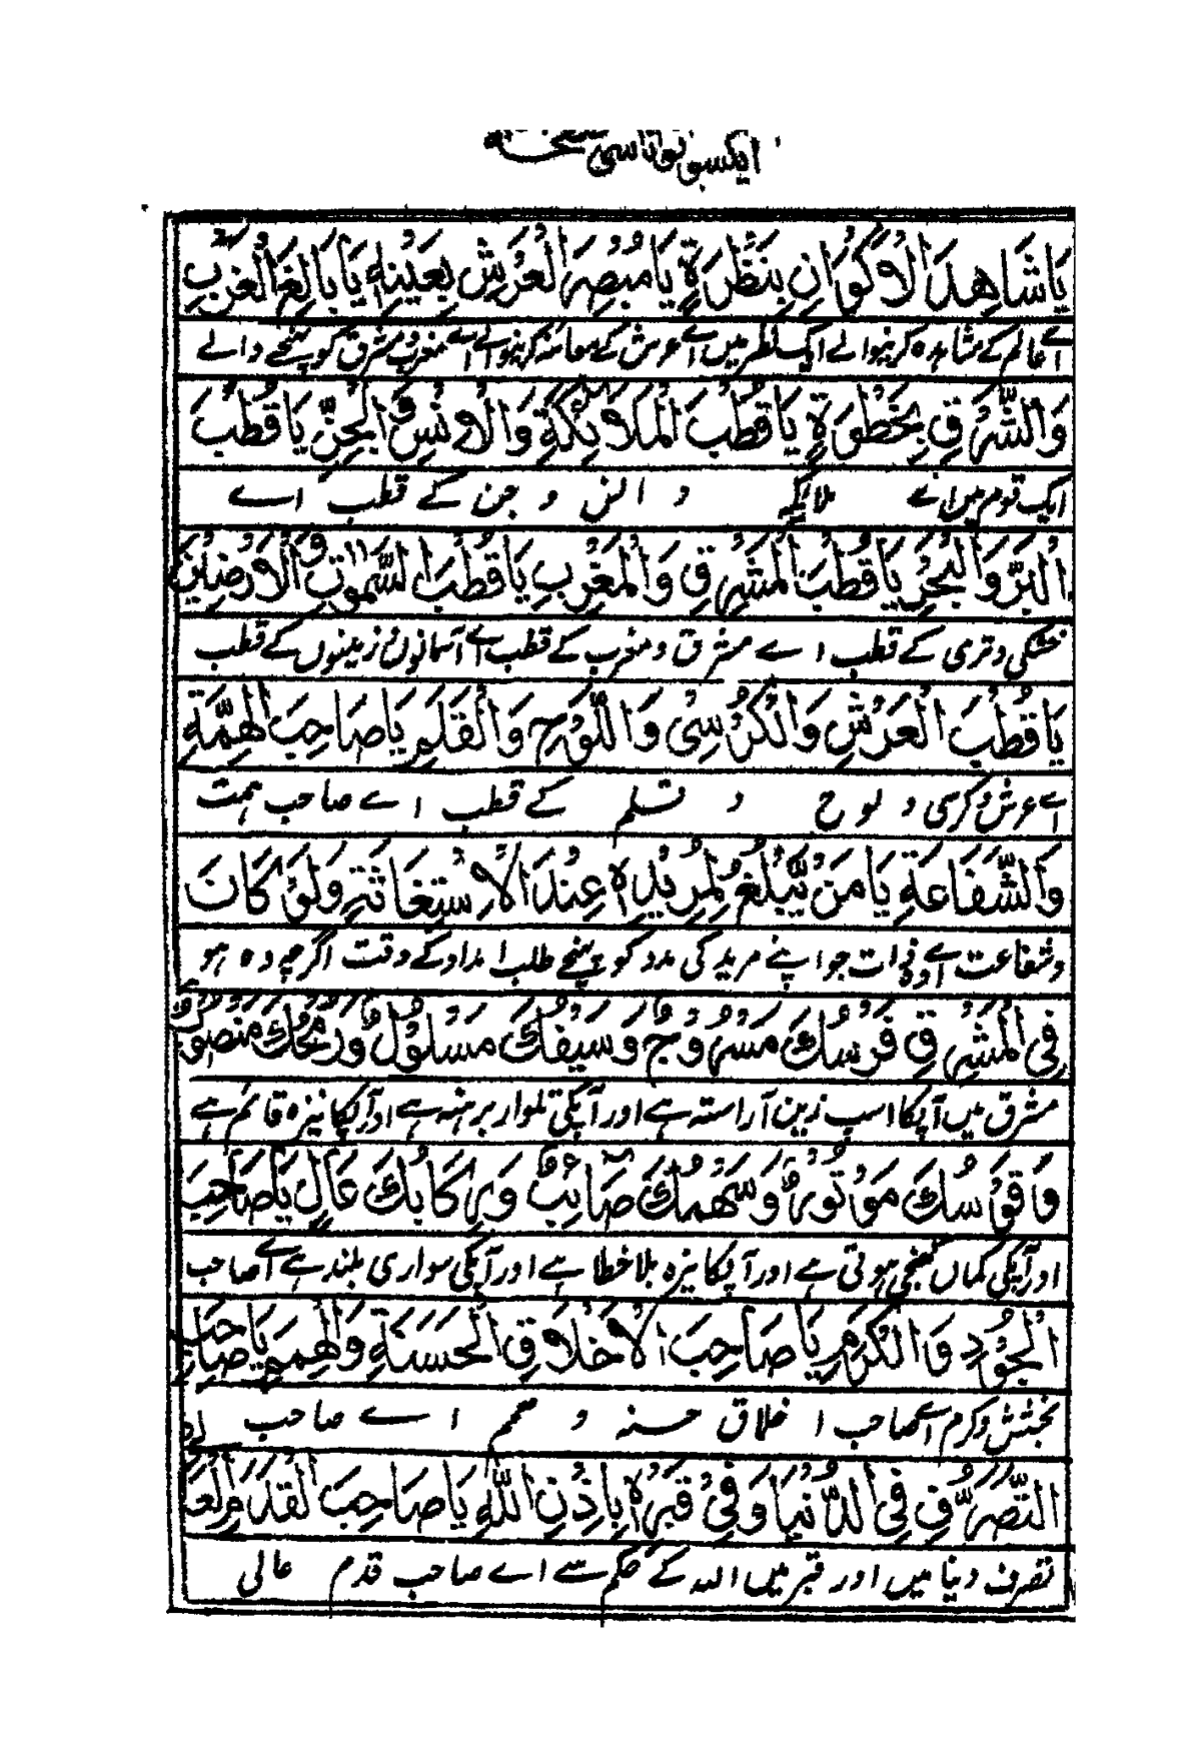 ایکسو نواسی
يَا شَاهِدَ الْاَكْوَانِ بِنَظْرَةٍ يَا مُبْصِرَ الْعَرْشِ بِعَيْنِهٖ يَا بَالِغَ الْغَرْبِ
اے عالم کے مشاہدہ کرنیوالے ایک نظر میں اے عرش کے معائنہ کرنیوالے اے مغرب و مشرق کو پہنچنے والے
وَالشَّرْقِ بِخَطْوَةٍ يَا قُطْبَ الْمَلَائِكَةِ وَالْاِنْسِ وَالْجِنِّ يَا قُطْبَ
ایک قدم میں اے ملائکہ و انس و جن کے قطب اے
الْبَرِّ وَالْبَحْرِ يَا قُطْبَ الْمَشْرِقِ وَالْمَغْرِبِ يَا قُطْبَ السَّمٰوٰتِ وَالْاَرْضِيْنَ
خشکی و تری کے قطب اے مشرق و مغرب کے قطب اے آسمانوں زمینوں کے قطب
يَا قُطْبَ الْعَرْشِ وَالْكُرْسِىْ وَاللَّوْحِ وَالْقَلَمِ يَا صَاحِبَ الْهِمَّةِ
اے عرش و کرسی و لوح و قلم کے قطب اے صاحب ہمت
وَالشَّفَاعَةِ يَا مَنْ يَّبْلُغُ لِمُرِيْدِهٖ عِنْدَ الْاِسْتِغَاثَةِ وَلَوْ كَانَ
و شفاعت اے وہ ذات جو اپنے مرید کی مدد کو پہنچے طلب امداد کے وقت اگرچہ وہ ہو
فِى الْمَشْرِقِ فَرَسُكَ مَسْرُوْجٌ وَسَيْفُكَ مَسْلُوْلٌ وَرُمْحُكَ مَنْصُوْبٌ
مشرق میں آپکا اسپ زین آراستہ ہے اور آپکی تلوار برہنہ ہے اور آپکا نیزہ قائم ہے
وَقَوْسُكَ مَوْتُوْرٌ وَسَهْمُكَ صَائِبٌ وَرِكَابُكَ عَالٍ يَا صَاحِبَ
اور آپکی کماں کھنچی ہوئی ہے اور آپکا نیزہ بلا خطا ہے اور آپکی سواری بلند ہے اے صاحب
الْجُوْدِ وَالْكَرَمِ يَا صَاحِبَ الْاَخْلَاقِ الْحَسَنَةِ وَالْهِمَمِ يَا صَاحِبَ
بخشش و کرم اے صاحب اخلاق حسنہ و ہمم اے صاحب
التَّصَرُّفِ فِى الدُّنْيَا وَفِىْ قَبْرِهٖ بِاِذْنِ اللّٰهِ يَا صَاحِبَ الْقَدَمِ
تصرف دنیا میں اور قبر میں اللہ کے حکم سے اے صاحب قدم عالی